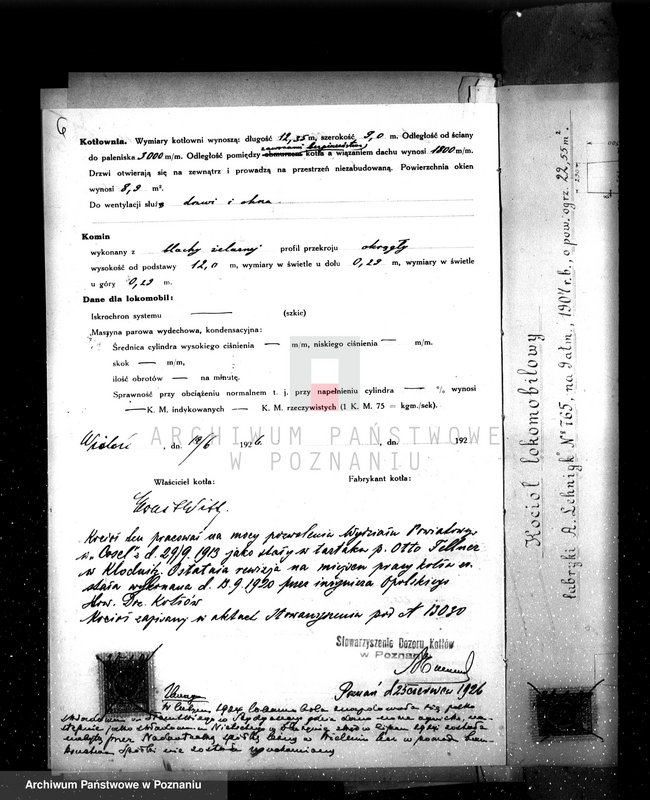 6
Kotłownia. Wymiary kotłowni wynoszą: długość 12,35 m, szerokość 9,0 m. Odległość od ściany
zaworami bezpieczeństwa
do paleniska 3000 m/m. Odległość pomiędzy obmurzem kotła a wiązaniem dachu wynosi 1800 m/m.
Drzwi otwierają się na zewnątrz i prowadzą na przestrzeń niezabudowaną. Powierzchnia okien
wynosi 8,9 m².
Do wentylacji służą drzwi i okna
Komin
wykonany z blachy żelaznej profil przekroju okrągły
wysokość od podstawy 12,0 m, wymiary w świetle u dołu 0,29 m, wymiary w świetle
u góry 0,29 m.
Dane dla lokomobil:
Iskrochron systemu — (szkic)
Maszyna parowa wydechowa, kondensacyjna:
Średnica cylindra wysokiego ciśnienia — m/m, niskiego ciśnienia — m/m.
skok — m/m,
ilość obrotów — na minutę.
Sprawność przy obciążeniu normalnem t. j. przy napełnieniu cylindra — % wynosi
— K. M. indykowanych — K. M. rzeczywistych (1 K. M. 75 = kgm./sek).
Wieleń, dn. 19/6 1926. , dn. 192
ARCHIWUM PAŃSTWOWE
W POZNANIU
Właściciel kotła: Fabrykant kotła:
Kocioł ten pracował na mocy pozwolenia Wydziału Powiatowego
w „Cosel" z d. 29/9. 1913 jako stały w tartaku p. Otto Fellner
w Kłodnitz. Ostatnia rewizja na miejscu pracy kotła zo-
stała wykonana d. 13.9.1920 przez inżyniera Opolskiego
Stow. Doz. Kotłów
Kocioł zapisany w aktach Stowarzyszenia pod N 13030
Stowarzyszenie Dozoru Kotłów
w Poznaniu
Poznań d 25 czerwca 1926
Uwaga
W lutym 1924 lokomobila znajdowała się jako
Kocioł lokomobilowy
fabryki A. Lehnigk N° 765, na 9 atm., 1907 r. b., o pow. ogrz. 22,55 m².
Archiwum Państwowe w Poznaniu